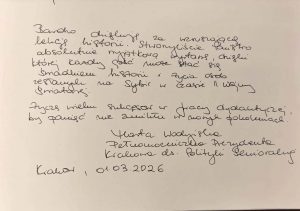 Bardzo dziękuję za wzruszającą
lekcję historii. Stworzyliście Państwo
absolutnie wyjątkową wystawę, dzięki
której każdy gość może stać się
świadkiem historii i życia osób
zesłanych na Sybir w czasie II wojny
światowej.
Życzę wielu sukcesów w pracy dydaktycznej,
by pamięć nie zanikła w nowych pokoleniach
Marta
Pełnomocniczka Prezydenta
Krakowa ds. Polityki Senioralnej
Kraków, 01.03.2026